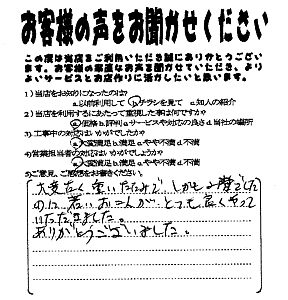 お客様の声をお聞かせください
この度は当店をご利用いただき誠にありがとうござい
ます。お客様の率直なお声を聞かせていただき、より
よいサービスとお店作りに活かしたいと思います。
1)当店をお知りになったのは?
a以前利用して bチラシを見て c知人の紹介
2)当店を利用するにあたって重視した事は何ですか?
a価格 b評判 cサービスや対応の良さ d当社の場所
3)工事中の対応はいかがでしたか?
a大変満足 b満足 cやや不満 d不満
4)営業担当者の対応はいかがでしょうか?
a大変満足 b満足 cやや不満 d不満
5)ご意見、ご感想をお書きください。
大変 たたみで、しかも2階でした
のに、若いお さんが、とても良くやって
いただきました。
ありがとうございました。